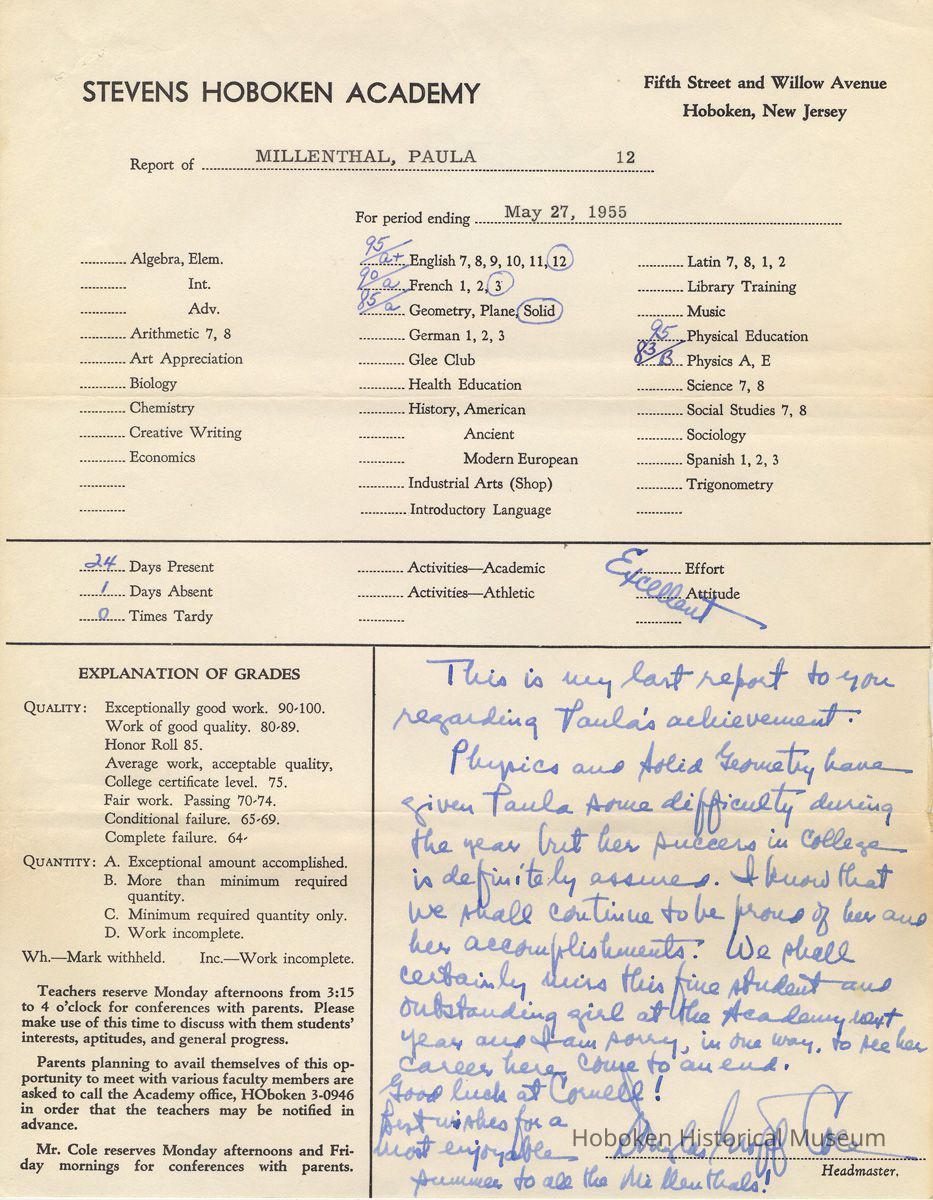 STEVENS HOBOKEN ACADEMY
Fifth Street and Willow Avenue
Hoboken, New Jersey
Report of MILLENTHAL, PAULA 12
For period ending May 27, 1955
Algebra, Elem.
Int.
Adv.
Arithmetic 7, 8
Art Appreciation
Biology
Chemistry
Creative Writing
Economics
95/a+ English 7, 8, 9, 10, 11, 12
90/a French 1, 2, 3
85/a Geometry, Plane, Solid
German 1, 2, 3
Glee Club
Health Education
History, American
Ancient
Modern European
Industrial Arts (Shop)
Introductory Language
Latin 7, 8, 1, 2
Library Training
Music
95 Physical Education
83/B Physics A, E
Science 7, 8
Social Studies 7, 8
Sociology
Spanish 1, 2, 3
Trigonometry
24 Days Present
1 Days Absent
0 Times Tardy
Activities—Academic
Activities—Athletic
Effort
Attitude
Excellent
EXPLANATION OF GRADES
QUALITY: Exceptionally good work. 90-100.
Work of good quality. 80-89.
Honor Roll 85.
Average work, acceptable quality,
College certificate level. 75.
Fair work. Passing 70-74.
Conditional failure. 65-69.
Complete failure. 64-
QUANTITY: A. Exceptional amount accomplished.
B. More than minimum required
quantity.
C. Minimum required quantity only.
D. Work incomplete.
Wh.—Mark withheld. Inc.—Work incomplete.
Teachers reserve Monday afternoons from 3:15
to 4 o'clock for conferences with parents. Please
make use of this time to discuss with them students'
interests, aptitudes, and general progress.
Parents planning to avail themselves of this op-
portunity to meet with various faculty members are
asked to call the Academy office, HOboken 3-0946
in order that the teachers may be notified in
advance.
Mr. Cole reserves Monday afternoons and Fri-
day mornings for conferences with parents.
This is my last report to you
regarding Paula's achievement.
Physics and Solid Geometry have
given Paula some difficulty during
the year but her success in college
is definitely assured. I know that
we shall continue to be proud of her and
her accomplishments. We shall
certainly miss this fine student and
outstanding girl at the Academy next
year and I am sorry, in one way, to see her
career here come to an end.
Good luck at Cornell!
Best wishes for a
most enjoyable
summer to all the Millenthals!
Douglas Cole
Headmaster.
Hoboken Historical Museum